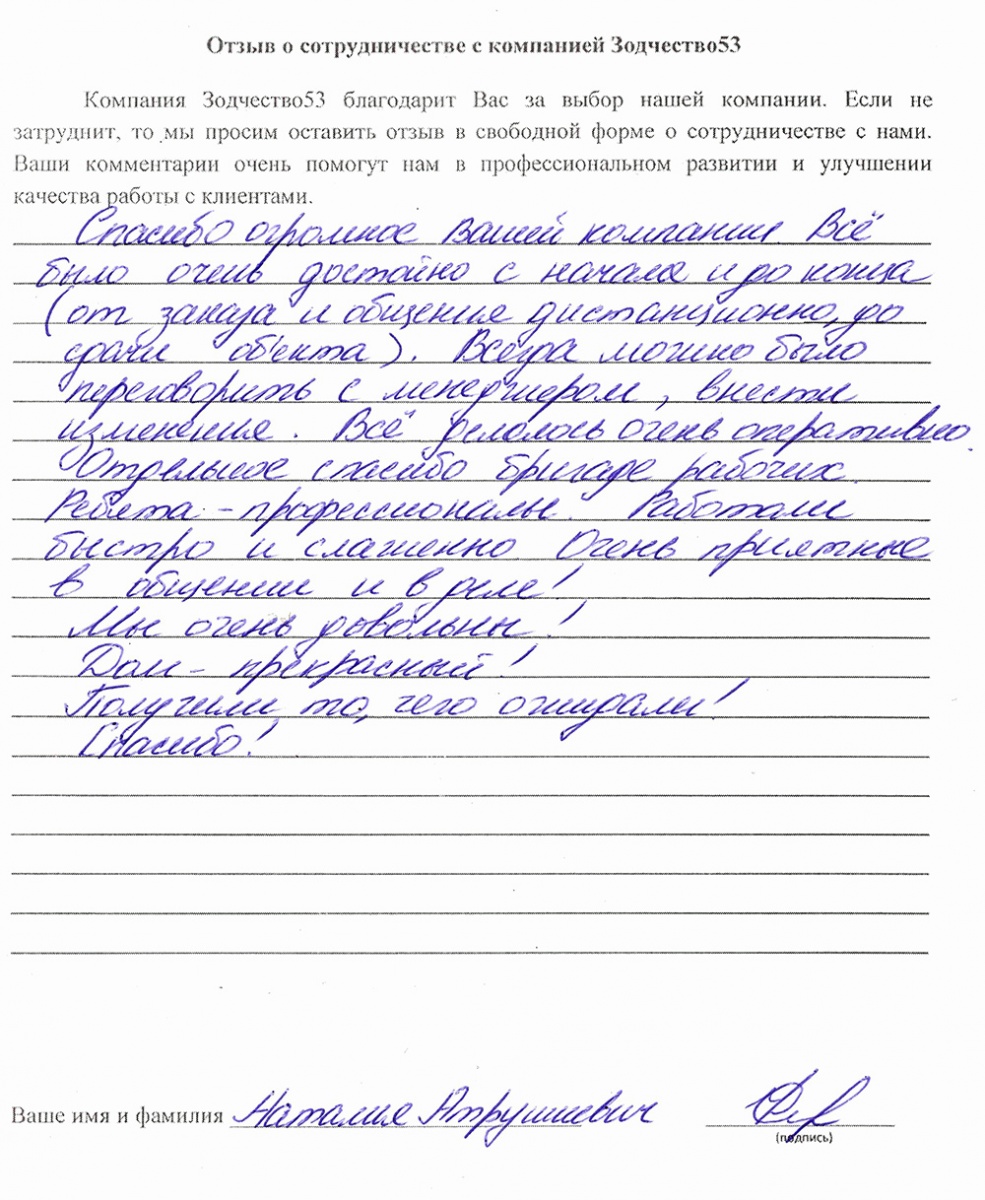 Отзыв о сотрудничестве с компанией Зодчество53
Компания Зодчество53 благодарит Вас за выбор нашей компании. Если не
затруднит, то мы просим оставить отзыв в свободной форме о сотрудничестве с нами.
Ваши комментарии очень помогут нам в профессиональном развитии и улучшении
качества работы с клиентами.
Спасибо огромное Вашей компании. Всё
было очень достойно с начала и до конца
(от заказа и общения дистанционно, до
сдачи объекта). Всегда можно было
переговорить с менеджером, внести
изменения. Всё делалось очень оперативно.
Отдельное спасибо бригаде рабочих.
Ребята - профессионалы. Работали
быстро и слаженно. Очень приятные
в общении и в деле!
Мы очень довольны!
Дом - прекрасный!
Получили то, чего ожидали!
Спасибо!
Ваше имя и фамилия Наталия Ятрушкевич
(подпись)